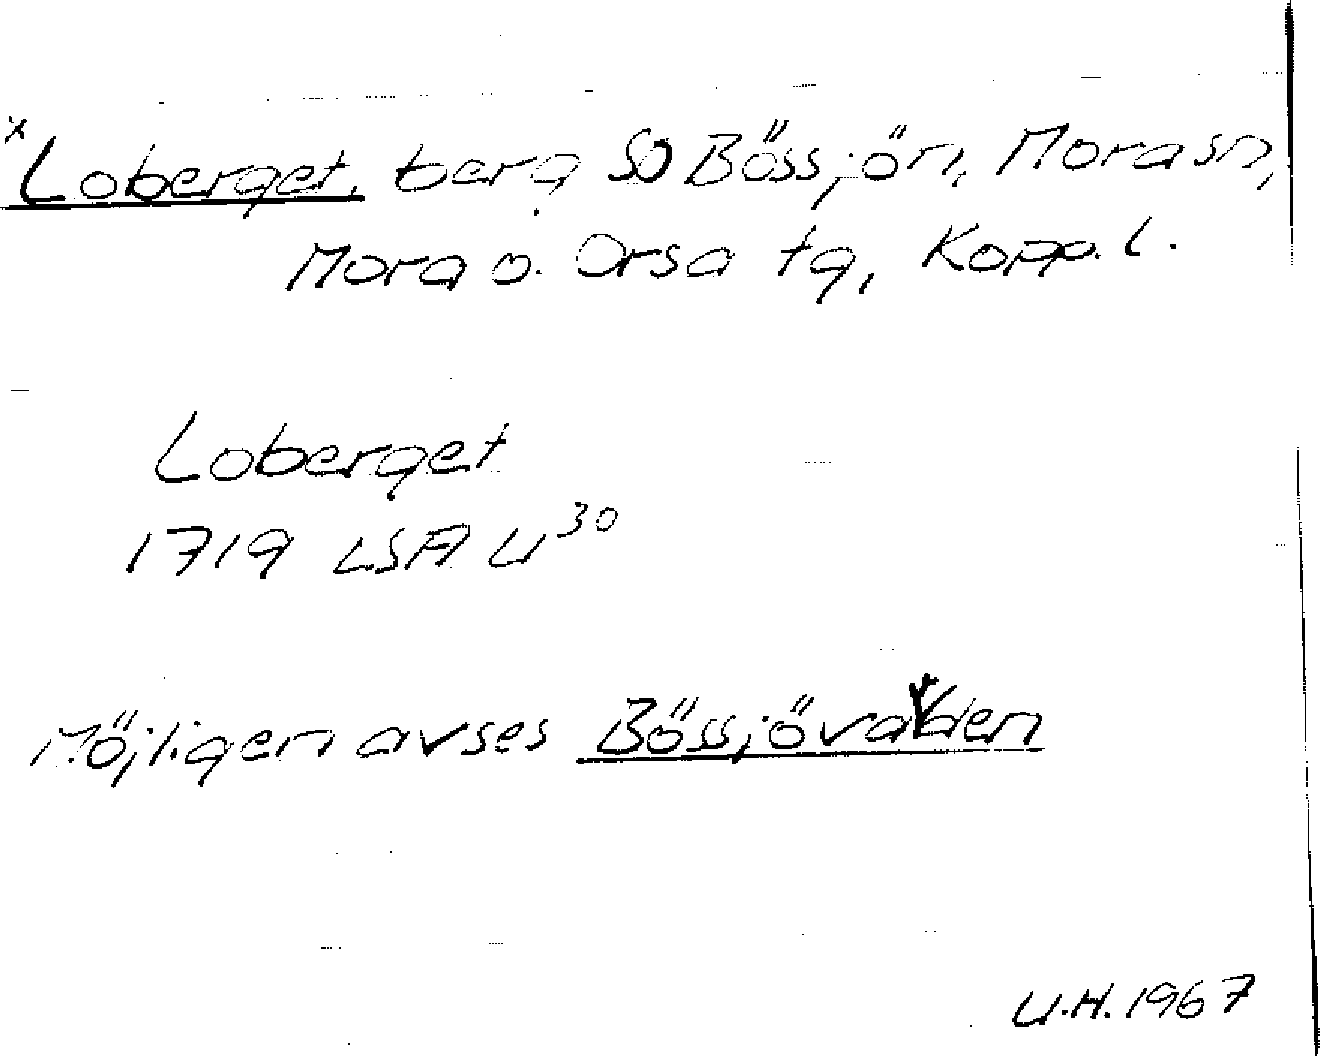 x Loberget, berg SO Bössjön, Mora sn,
Mora o. Orsa tg, Kopp. l.
Loberget
1719 LSA U³⁰
Möjligen avses Bössjövarden
U.H. 1967